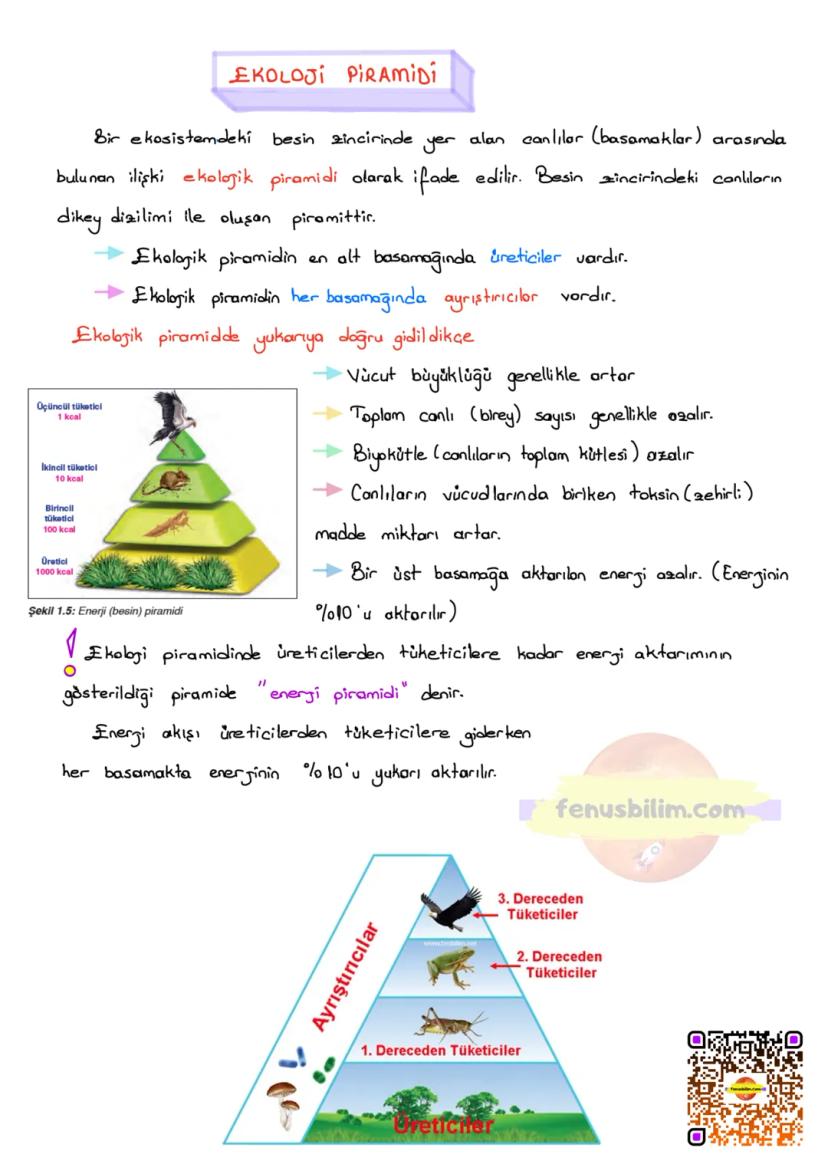 EKOLOJİ PİRAMİDİ
Bir ekosistemdeki besin zincirinde yer alan canlılar (basamaklar) arasında
bulunan ilişki ekolojik piramidi olarak ifade edilir. Besin zincirindeki canlıların
dikey dizilimi ile oluşan piramittir.
Ekolojik piramidin en alt basamağında üreticiler vardır.
Ekolojik piramidin her basamağında ayrıştırıcılar vardır.
Ekolojik piramidde yukarıya doğru gidildikçe
Vücut büyüklüğü genellikle artar
Toplam canlı (birey) sayısı genellikle azalır.
Biyokütle (canlıların toplam kütlesi) azalır
Canlıların vücudlarında biriken toksin (zehirli)
madde miktarı artar.
Bir üst basamağa aktarılan enerji azalır. (Enerjinin
%10'u aktarılır)
Üçüncül tüketici
1 kcal
İkincil tüketici
10 kcal
Birincil
tüketici
100 kcal
Üretici
1000 kcal
Şekil 1.5: Enerji (besin) piramidi
! Ekoloji piramidinde üreticilerden tüketicilere kadar enerji aktarımının
gösterildiği piramide "enerji piramidi" denir.
Enerji akışı üreticilerden tüketicilere giderken
her basamakta enerjinin %10'u yukarı aktarılır.
fenusbilim.com
3. Dereceden
Tüketiciler
2. Dereceden
Tüketiciler
1. Dereceden Tüketiciler
Üreticiler
Ayrıştırıcılar